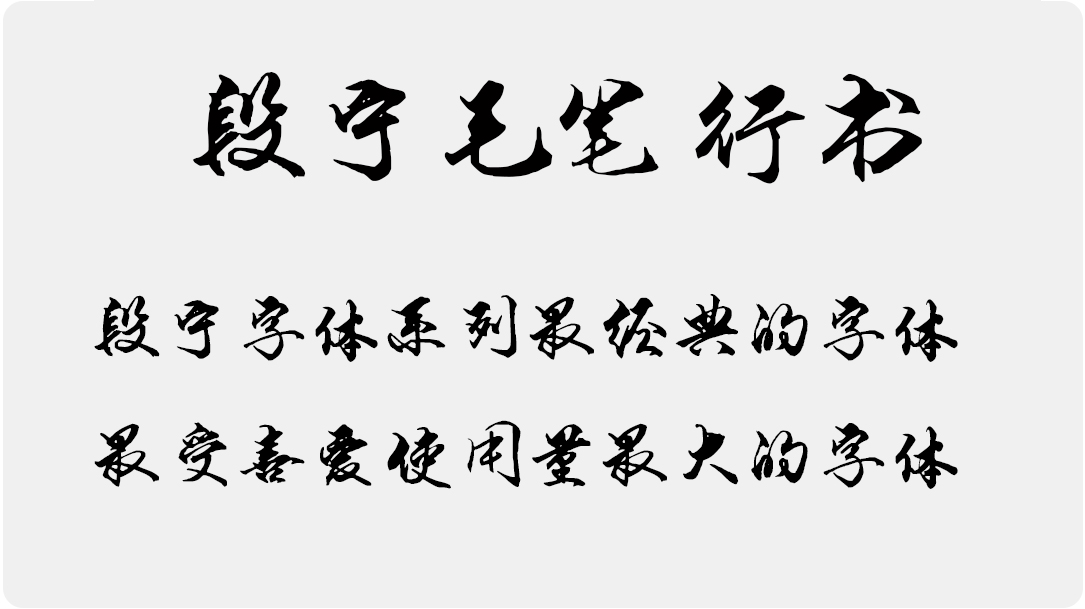 段宁毛笔行书
段宁字体系列最经典的字体
最受喜爱使用量最大的字体